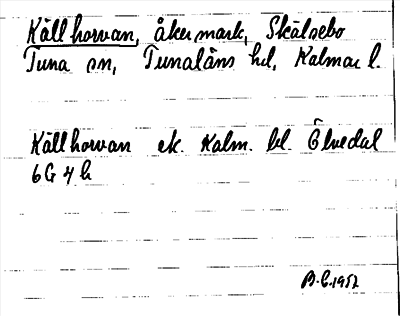 Källhorvan, åkermark, Skälsebo
Tuna sn, Tunaläns hd, Kalmar l.
Källhorvan ek. Kalm. bl. Ölvedal
6G4b
B.C. 1952